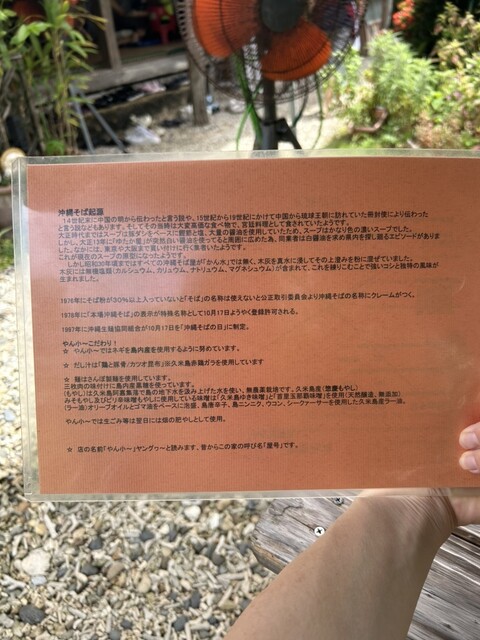 沖縄そば起源
14世紀末に中国の明から伝わったと言う説や、15世紀から19世紀にかけて中国から琉球王朝に訪れていた冊封使により伝わった
と言う説などもあります。そしてその当時は大変高価な食べ物で、宮廷料理として食されていたようです。
大正時代まではスープは豚ダシをベースに鰹節と塩、大量の醤油を使用していたため、スープはかなり色の濃いスープでした。
しかし、大正13年に「ゆたか屋」が突然白い醤油を使ってると周囲に広めた為、同業者は白醤油を求め県内を探し廻るエピソードがありま
した。なかには、東京や大阪まで買い付けに行く業者いたようです。
これが現在のスープの原型になったようです。
しかし昭和30年頃まではすべての沖縄そばの麺が「かん水」では無く、木灰を真水に浸してその上澄みを粉に混ぜていました。
木灰には無機塩類(カルシュウム、カリュウム、ナトリュウム、マグネシュウム)が含まれて、これを練りこむことで強いコシと独特の風味が
生まれました。
1976年にそば粉が30%以上入っていないと「そば」の名称は使えないと公正取引委員会より沖縄そばの名称にクレームがつく。
1978年に「本場沖縄そば」の表示が特殊名称として10月17日ようやく登録許可される。
1997年に沖縄生麺協同組合が10月17日を「沖縄そばの日」に制定。
やん小〜こだわり！
☆ やん小〜ではネギを島内産を使用するように努めています。
☆ だし汁は「鶏と豚骨/カツオ昆布」※久米島赤鶏ガラを使用しています
☆ 麺はさんぱ製麺を使用しています。
三枚肉の味付けに島内産黒糖を使っています。
(もやし)は久米島阿嘉集落で島の地下水を汲み上げた水を使い、無農薬栽培です。久米島産(惣慶もやし)
みそもやし、及びピリ辛味噌もやしに使用している味噌は「久米島ゆき味噌」と「首里玉那覇味噌」を使用(天然醸造、無添加)
(ラー油)オリーブオイルとゴマ油をベースに泡盛、島唐辛子、島ニンニク、ウコン、シークァーサーを使用した久米島産ラー油。
やん小〜では生ごみ等は翌日には畑の肥やしとして使用。
☆ 店の名前「やん小〜」ヤングヮ〜と読みます、昔からこの家の呼び名「屋号」です。